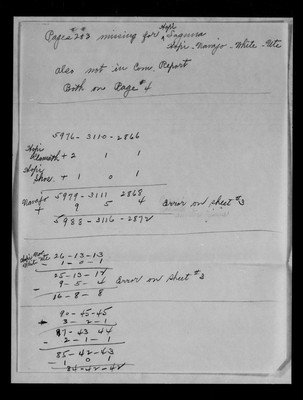 Pages #2 #3 missing for Hopi Laguna
Hopi - Navajo - White - Ute
also not in Com. Report
Both on Page #4
5976 - 3110 - 2866
Hopi
Klamath + 2 1 1
Hopi
Shos. + 1 0 1
Navajo 5979 - 3111 2868
+ 9 5 4 Error on sheet #3
5988 - 3116 - 2872
26 - 13 - 13
- 1 - 0 - 1
25 - 13 - 12
- 9 - 5 - 4 Error on Sheet #3
16 - 8 - 8
90 - 45 - 45
- 3 - 2 - 1
87 - 43 44
- 2 - 1 - 1
85 - 42 - 43
- 1 0 1
84 - 42 - 42